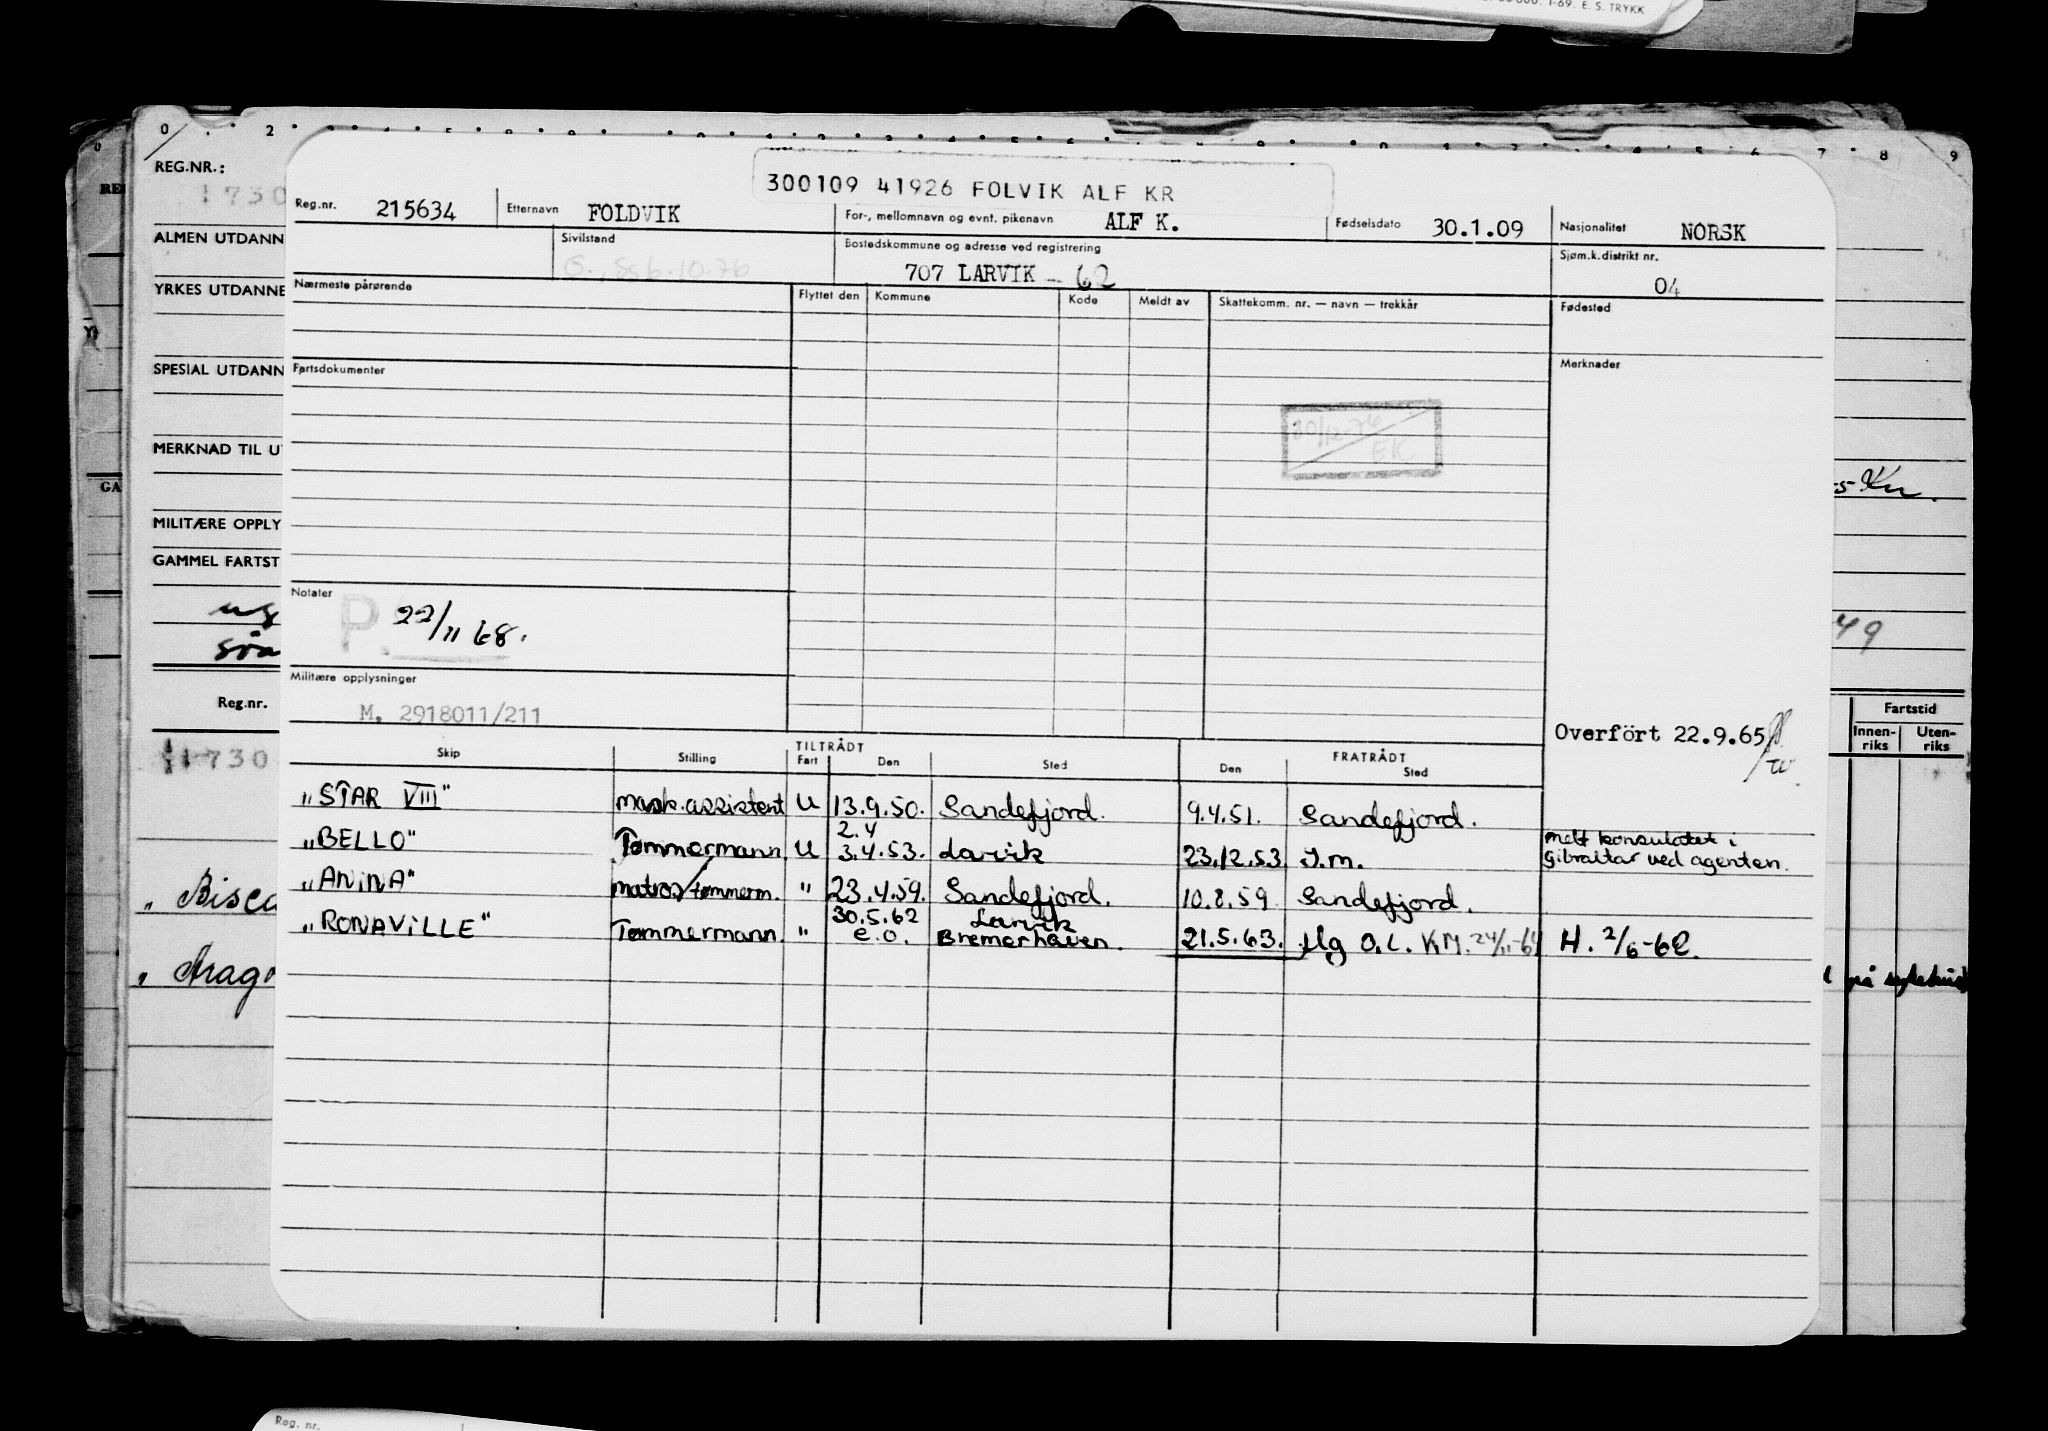 1-69. E. S. TRYKK
REG.NR.:
1730
ALMEN UTDANN
YRKES UTDANNE
SPESIAL UTDANN
MERKNAD TIL U
MILITÆRE OPPLY
GAMMEL FARTST
Reg.nr.
1730
300109 41926 FOLVIK ALF KR
Reg.nr. 215634 Etternavn FOLDVIK For-, mellomnavn og evnt. pikenavn ALF K. Fødselsdato 30.1.09 Nasjonalitet NORSK
Sivilstand Bostedskommune og adresse ved registrering Sjøm.k.distrikt nr.
G., ss 6.10.76 707 LARVIK - 62 04
Nærmeste pårørende Flyttet den Kommune Kode Meldt av Skattekomm. nr. — navn — trekkår Fødested
Fartsdokumenter Merknader
30/12-76
EK
Notater P. 22/11 68.
Militære opplysninger
M. 2918011/211
Overfört 22.9.65
Skip Stilling TILTRÅDT Fart Den Sted FRATRÅDT Den Sted
„STAR VIII" mask.assistent U 13.9.50. Sandefjord. 9.4.51. Sandefjord.
„BELLO" Tømmermann U 2.4 3.4.53. Larvik 23.12.53 I.m. melt konsulatet i Gibraltar ved agenten.
„ANINA" matros/tømmerm. " 23.4.59. Sandefjord. 10.8.59 Sandefjord.
„RONAVILLE" Tømmermann. " 30.5.62 e.o. Larvik Bremerhaven. 21.5.63. Mg O.L. KM. 24/11-64 H. 2/6-62.
Fartstid
Innen-riks Uten-riks
49
på sykehus
„ Bisca
„ Arag
Reg. nr.